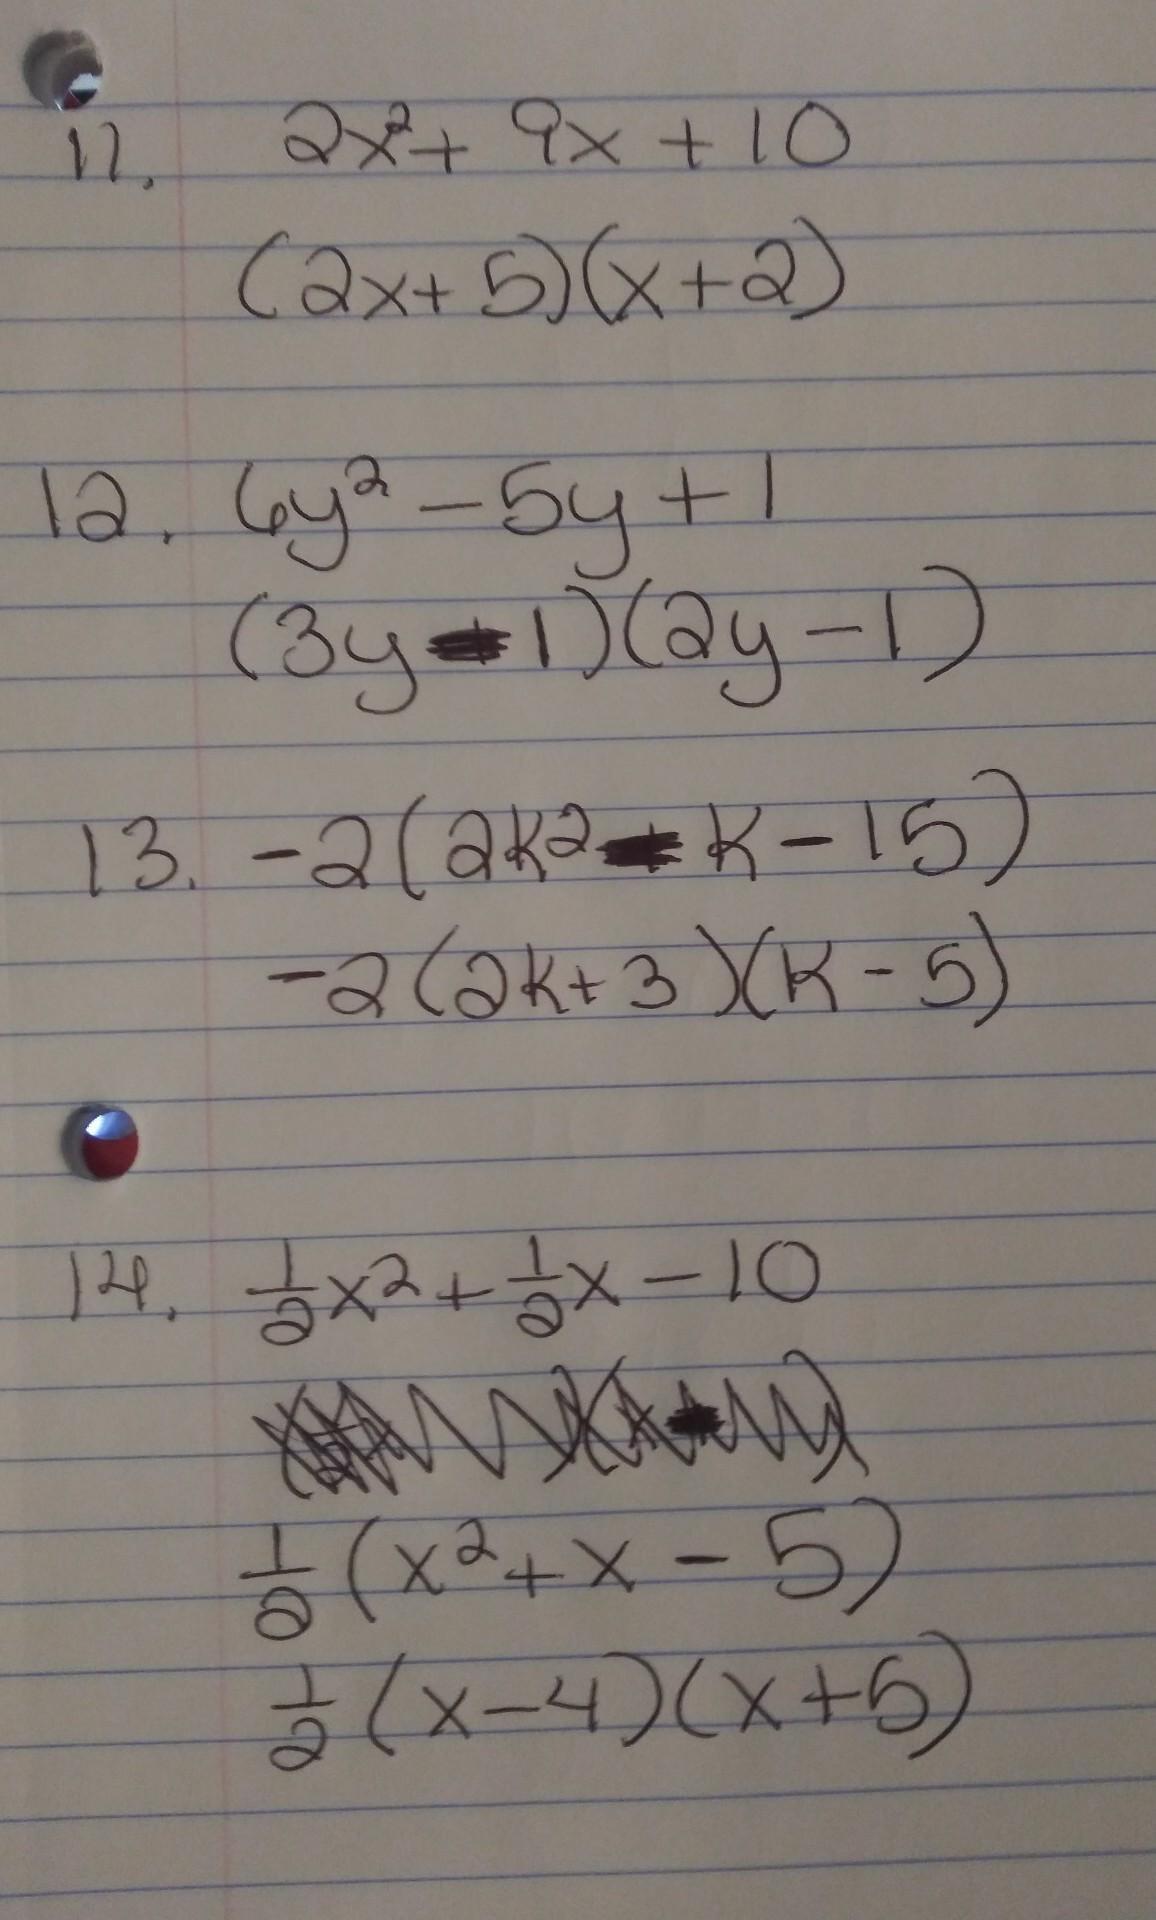 11. 2x² + 9x + 10
(2x + 5)(x + 2)
12. 6y² - 5y + 1
(3y - 1)(2y - 1)
13. -2(2k² - k - 15)
-2(2k + 3)(k - 5)
14. 1/2x² + 1/2x - 10
1/2(x² + x - 5)
1/2(x - 4)(x + 5)